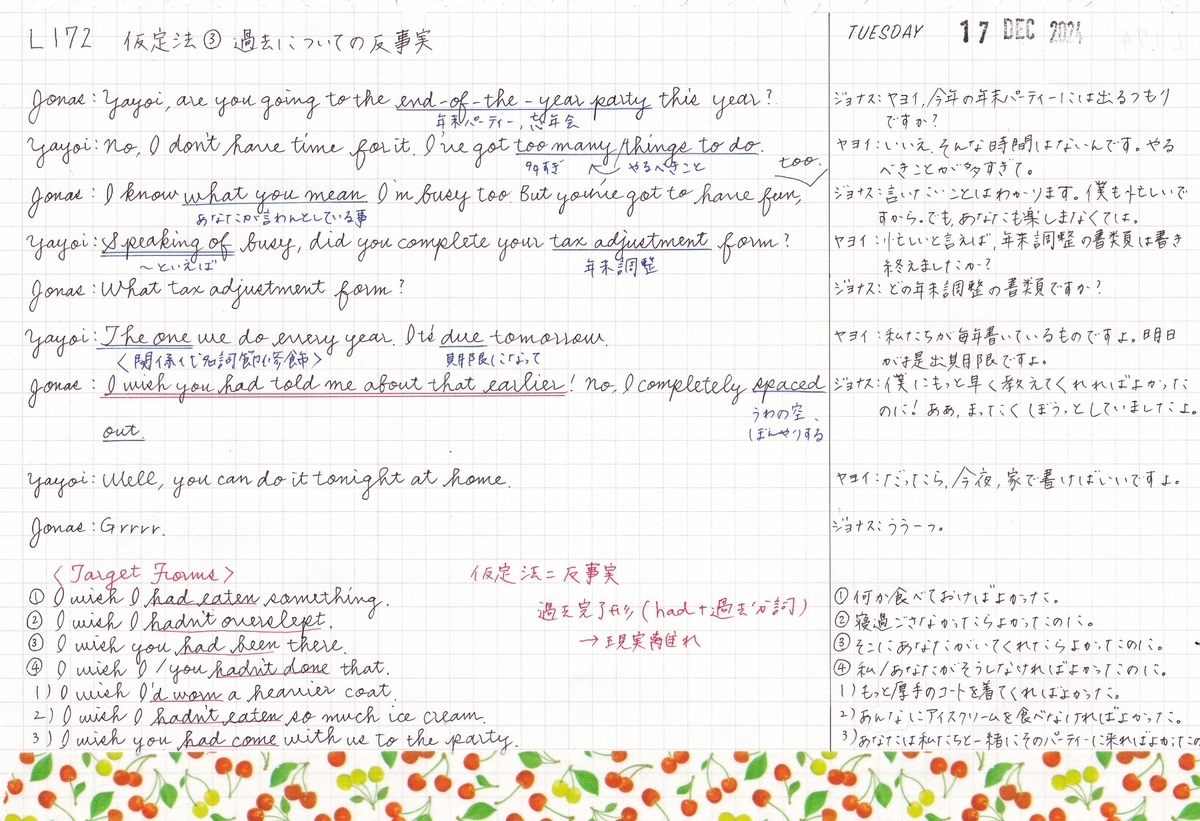 L172 仮定法③ 過去についての反事実
TUESDAY 17 DEC 2024
Jonas: Yayoi, are you going to the end-of-the-year party this year?
年末パーティー, 忘年会
Yayoi: No, I don't have time for it. I've got too many/things to do.
多すぎ やるべきこと
too.
Jonas: I know what you mean I'm busy too. But you've got to have fun,
あなたが言わんとしている事
Yayoi: Speaking of busy, did you complete your tax adjustment form?
〜といえば 年末調整
Jonas: What tax adjustment form?
Yayoi: The one we do every year. It's due tomorrow.
〈関係代名詞節修飾〉 期限になって
Jonas: I wish you had told me about that earlier! No, I completely spaced
うわの空、
out.
ぼんやりする
Yayoi: Well, you can do it tonight at home.
Jonas: Grrrr.
〈Target Forms〉
仮定法=反事実
過去完了形(had+過去分詞)
→現実離れ
① I wish I had eaten something.
② I wish I hadn't overslept.
③ I wish you had been there.
④ I wish I/you hadn't done that.
1) I wish I'd worn a heavier coat.
2) I wish I hadn't eaten so much ice cream.
3) I wish you had come with us to the party.
ジョナス:ヤヨイ,今年の年末パーティーには出るつもり
ですか?
ヤヨイ:いいえ,そんな時間はないんです。やる
べきことが多すぎて。
ジョナス:言いたいことはわかります。僕も忙しいで
すから。でも,あなたも楽しまなくては。
ヤヨイ:忙しいと言えば,年末調整の書類は書き
終えましたか?
ジョナス:どの年末調整の書類ですか?
ヤヨイ:私たちが毎年書いているものですよ。明日
が提出期限ですよ。
ジョナス:僕にもっと早く教えてくれればよかった
のに!ああ,まったくぼうっとしていましたよ。
ヤヨイ:だったら,今夜,家で書けばいいですよ。
ジョナス:ううーっ。
①何か食べておけばよかった。
②寝過ごさなかったらよかったのに。
③そこにあなたがいてくれたらよかったのに。
④私/あなたがそうしなければよかったのに。
1)もっと厚手のコートを着てくればよかった。
2)あんなにアイスクリームを食べなければよかった。
3)あなたは私たちと一緒にそのパーティーに来ればよかったの